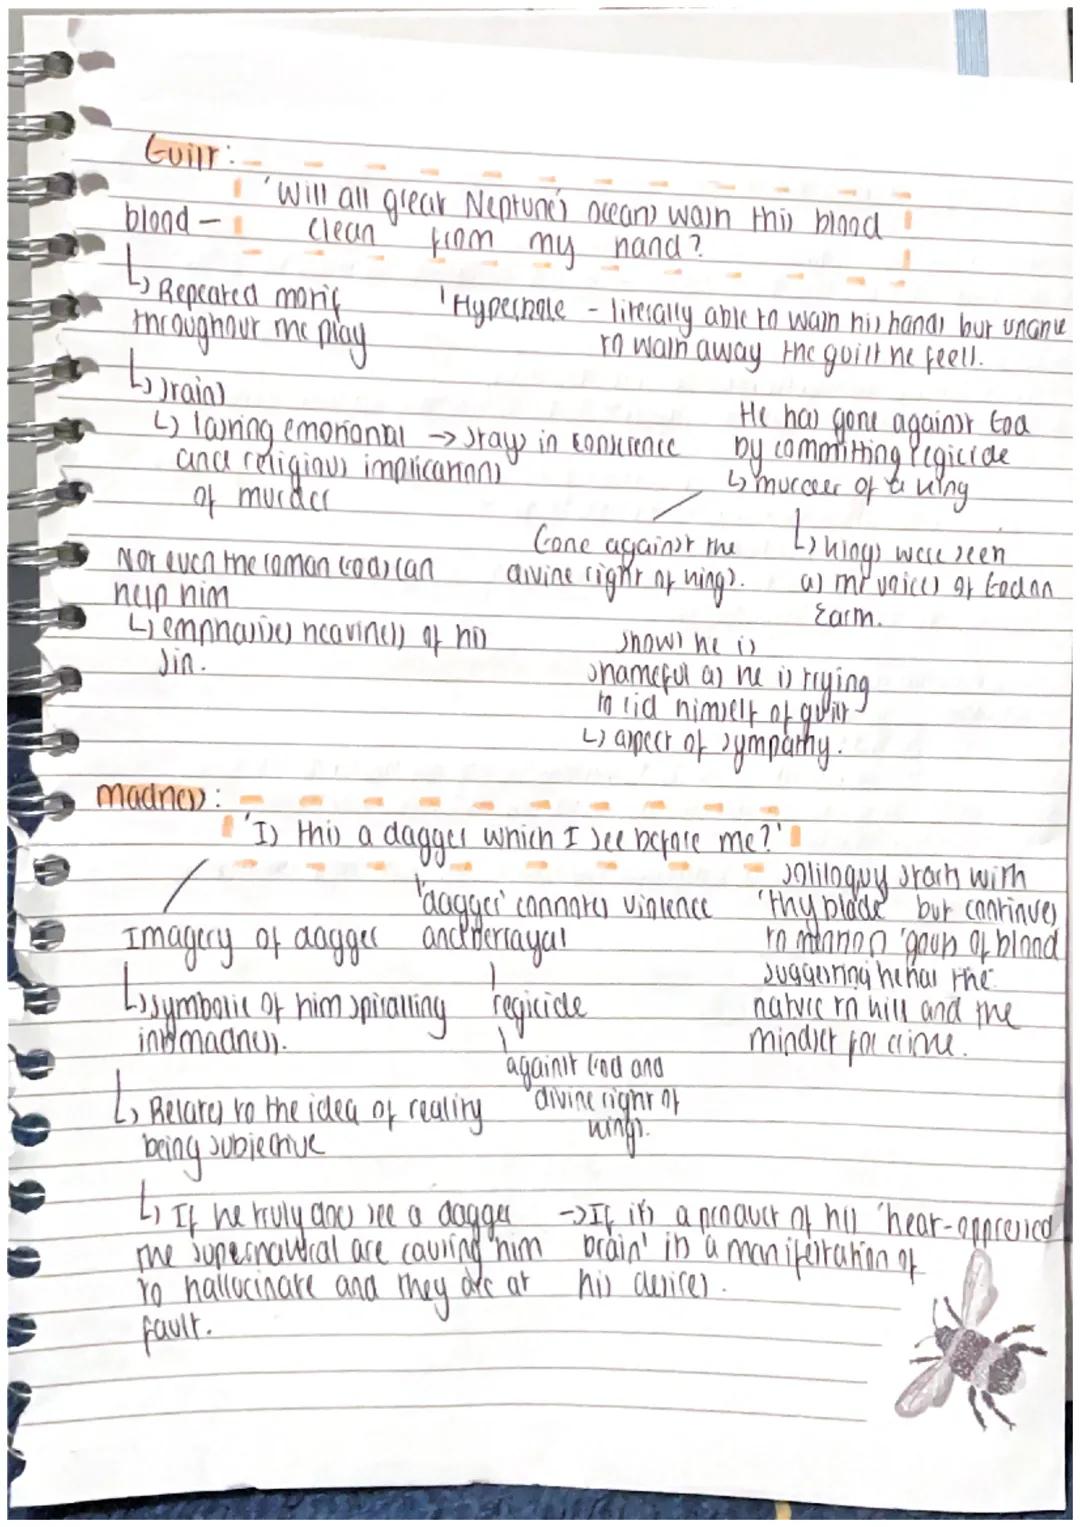 Guilt:
'Will all great Neptune's oceans wash this blood
clean from my hand?
blood –
↳ Repeated motif
throughout the play
'Hyperbole – literally able to wash his hands but unable
to wash away the guilt he feels.
↳ stains
↳ lasting emotional → stays in conscience
and religious implications
of murder
He has gone against God
by committing regicide
↳ murder of a king
Gone against the
divine right of kings.
↳ kings were seen
as the voices of God on
Earth.
Not even the roman Gods can
help him
↳ emphasises heaviness of his
sin.
shows he is
shameful as he is trying
to rid himself of guilt
↳ aspect of sympathy.
madness:
'Is this a dagger which I see before me?'
Imagery of dagger
↳ symbolic of him spiralling
into madness.
'dagger' connotes violence
and betrayal
regicide
against God and
divine right of
kings.
soliloquy starts with
'thy blade' but continues
to mention 'gouts of blood
suggesting he has the
nature to kill and the
mindset for crime.
↳ Relates to the idea of reality
being subjective
↳ If he truly does see a dagger
the supernatural are causing him
to hallucinate and they are at
fault.
→ If it's a product of his 'heat-oppressed
brain' its a manifestation of
his desires.